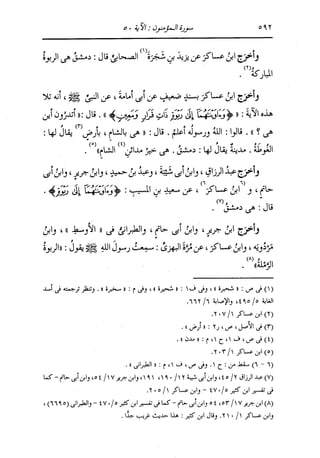 ٥٩٢ سورة المؤمنون : الآية ٥٠
وأخرج ابنُ عساكرَ عن يزيدَ بنِ شجرةَ(١) الصحابىِّ قال : دمشقُ هى الربوةُ
المباركةُ(٢) .
وأخرج ابنُ عساكرَ بسندٍ ضعيفٍ عن أبى أمامةَ ، عن النبىِّ ﷺ ، أنه تلا
هذه الآيةَ : « ﴿وَءَاوَيْنَٰهُمَآ إِلَىٰ رَبْوَةٍ ذَاتِ قَرَارٍ وَمَعِينٍ﴾ » . قال : « أتدرُون أين
هى ؟ » . قالوا : اللهُ ورسولُه أعلمُ . قال : « هى بالشامِ ، بأرضٍ(٣) يقالُ لها :
الغوطةُ . مدينةٌ يقالُ لها : دمشقُ . هى خيرُ مدائنِ(٤) الشامِ »(٥) .
وأخرج عبدُ الرزاقِ ، وابنُ أبى شيبةَ ، وعبدُ بنُ حميدٍ ، وابنُ جريرٍ ، وابنُ أبى
حاتمٍ ، و(٦) ابنُ عساكرَ(٦) ، عن سعيدِ بنِ المسيبِ : ﴿وَءَاوَيْنَٰهُمَآ إِلَىٰ رَبْوَةٍ﴾ .
قال : هى دمشقُ(٧) .
وأخرج ابنُ جريرٍ ، وابنُ أبى حاتمٍ ، والطبرانىُّ فى « الأوسطِ » ، وابنُ
مَرْدُويَه ، وابنُ عساكرَ ، عن مُرَّةَ البَهْزِىِّ : سمِعتُ رسولَ اللهِ ﷺ يقولُ : « الربوةُ
الرَّمْلةُ »(٨) .
(١) فى ص : « شحيرة » ، وفى ف ١ : « شحيرة » ، وفى م : « سخبرة » . وتنظر ترجمته فى أسد
الغابة ٥/ ٤٩٥، والإصابة ٦/ ٦٦٢.
(٢) ابن عساكر ١/ ٢٠٧.
(٣) فى الأصل ، ص ، ر ٢ : « أرض » .
(٤) فى ص ، ف ١ ، ح ١ ، م : « مدن » .
(٥) ابن عساكر ١/ ٢٠٣.
(٦ - ٦) سقط من : ح ١ . وفى ص ، ف ١ ، م : « الطبرانى » .
(٧) عبد الرزاق ٢/ ٤٥، وابن أبى شيبة ١٢/ ١٩٠، ١٩١، وابن جرير ١٧/ ٥٤، وابن أبى حاتم - كما
فى تفسير ابن كثير ٥/ ٤٧٠ - وابن عساكر ١/ ٢٠٥.
(٨) ابن جرير ١٧/ ٥٣، ٥٤ وابن أبى حاتم - كما فى تفسير ابن كثير ٥/ ٤٧٠ - والطبرانى (٦٦٩٥) ،
وابن عساكر ١/ ٢١٠. وقال ابن كثير : هذا حديث غريب جدًّا .